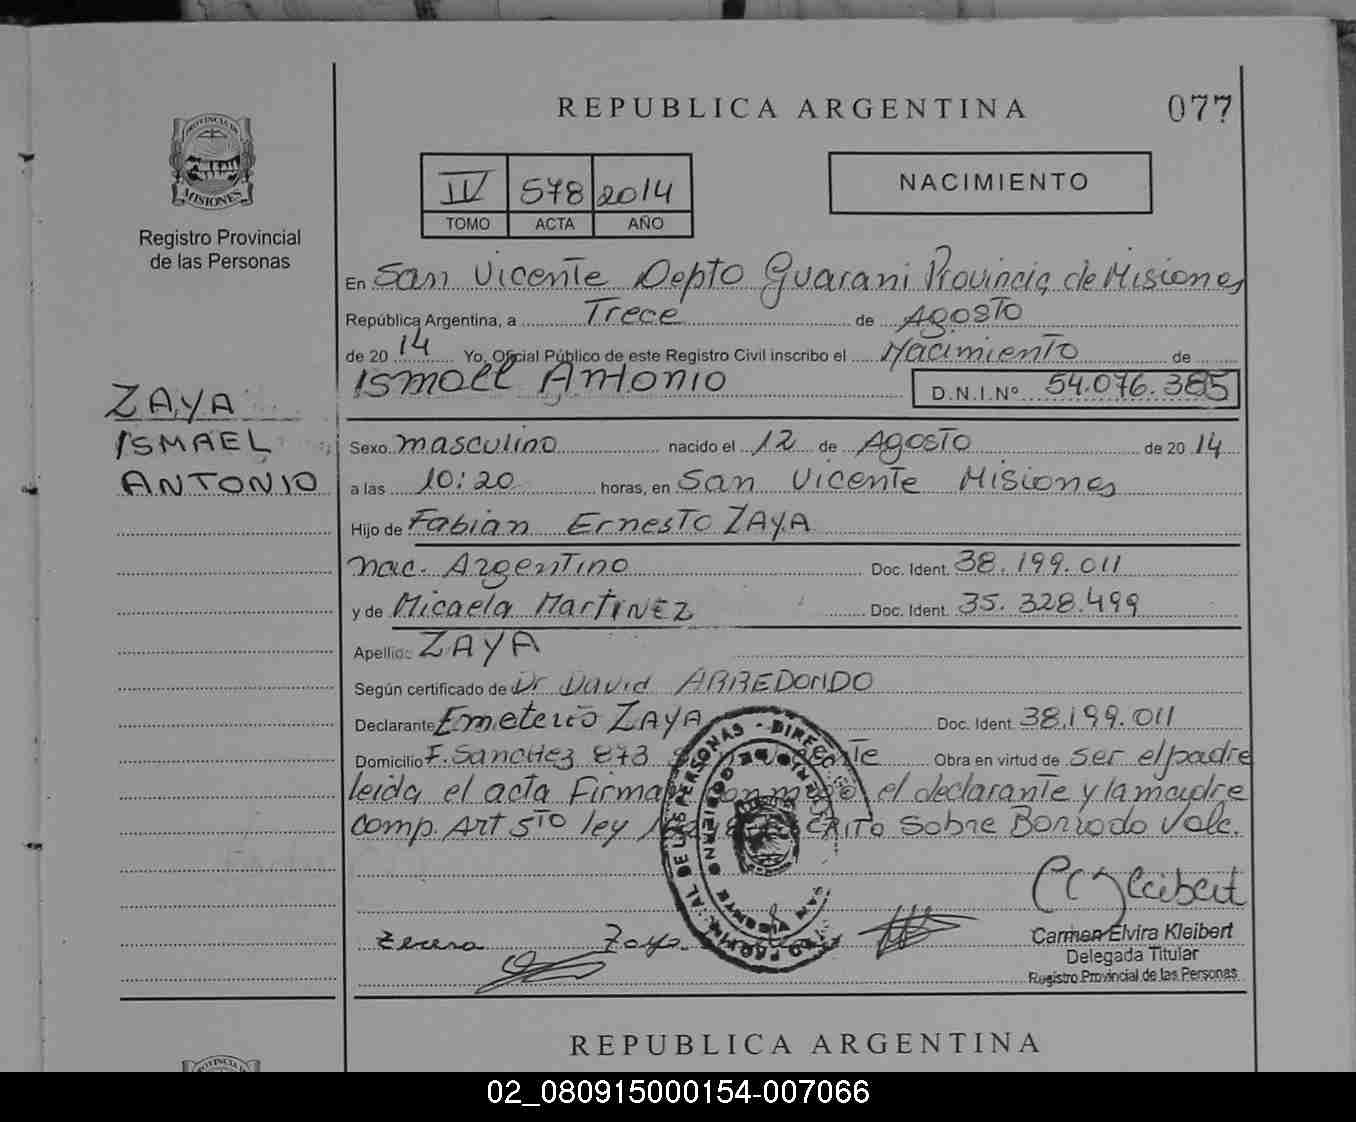 REPUBLICA ARGENTINA 077
PROVINCIA DE
MISIONES
Registro Provincial
de las Personas
IV 578 2014
TOMO ACTA AÑO
NACIMIENTO
En San Vicente Depto Guarani Provincia de Misiones
República Argentina, a Trece de Agosto
de 20 14 Yo, Oficial Público de este Registro Civil inscribo el Nacimiento de
Ismael Antonio D.N.I.Nº 54.076.385
ZAYA
ISMAEL
ANTONIO
Sexo masculino nacido el 12 de Agosto de 20 14
a las 10:20 horas, en San Vicente Misiones
Hijo de Fabian Ernesto ZAYA
nac. Argentino Doc. Ident. 38.199.011
y de Micaela MartiNEZ Doc. Ident. 35.328.499
Apellido: ZAYA
Según certificado de Dr David ARREDONDO
Declarante Emeterio ZAYA Doc. Ident. 38.199.011
Domicilio F. Sanchez 873 Obra en virtud de ser el padre
leida el acta Firman el declarante y la madre
comp. Art 5to ley sobre Borrado Vale.
Zaya
Carmen Elvira Kleibert
Delegada Titular
Registro Provincial de las Personas
REPUBLICA ARGENTINA
02_080915000154-007066